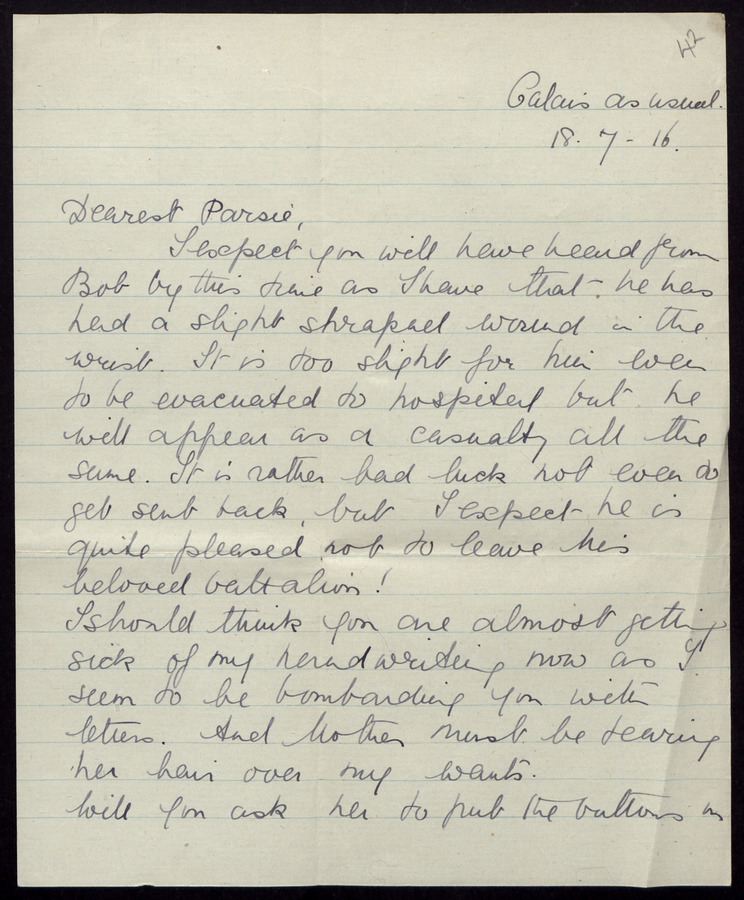 42
Calais as usual.
18. 7 - 16.
Dearest Parsie,
I expect you will have heard from
Bob by this time as I have that he has
had a slight shrapnel wound in the
wrist. It is too slight for him even
to be evacuated to hospital but he
will appear as a casualty all the
same. It is rather bad luck not even to
get sent back, but I expect he is
quite pleased not to leave his
beloved battalion!
I should think you are almost getting
sick of my handwriting now as I
seem to be bombarding you with
letters. And Mother must be tearing
her hair over my wants.
Will you ask her to put the buttons on